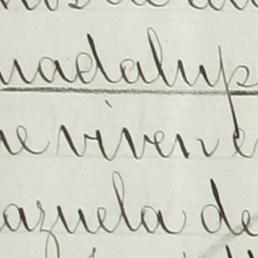 uadalup
ue viven e
azuela de